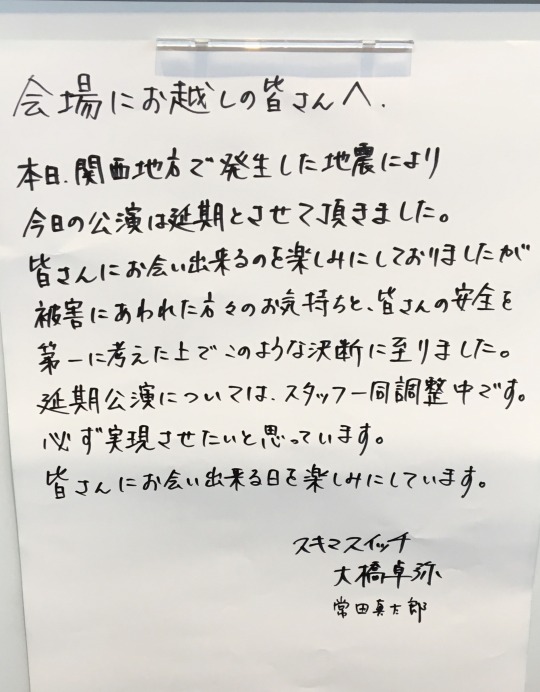 会場にお越しの皆さんへ.
本日、関西地方で発生した地震により
今日の公演は延期とさせて頂きました。
皆さんにお会い出来るのを楽しみにしておりましたが
被害にあわれた方々のお気持ちと、皆さんの安全を
第一に考えた上でこのような決断に至りました。
延期公演については、スタッフ一同調整中です。
必ず実現させたいと思っています。
皆さんにお会い出来る日を楽しみにしています。
スキマスイッチ
大橋卓弥
常田真太郎